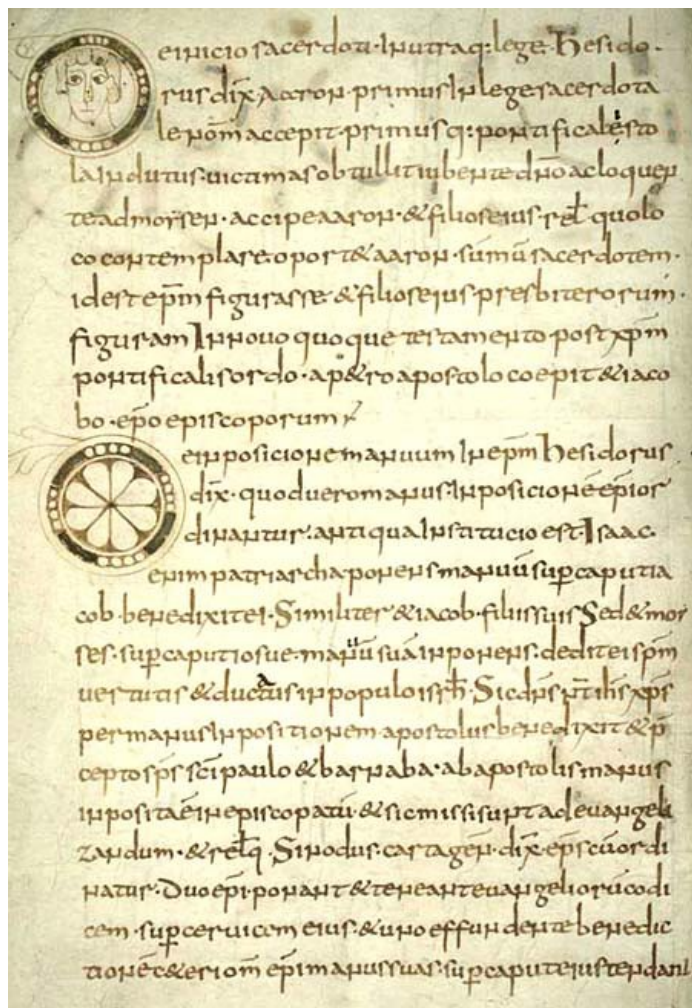 einicio sacerdoti · Inutraq: lege · hesido ·
rus dix̄ Aaron · primus In lege sacerdota
le nom̄ accepit · primusq: pontificale sto
la Indutus · uictimas obtullit iubente dn̄o ac loquen
te ad moysen · accipe aaron · & filios eius · rel̄ quo lo
co contemplare oport& aaron · sūmū sacerdotem ·
id est ep̄m figurasse & filios eius · presbiterorum ·
figuram In nouo quoque testamento post xp̄m
pontificalis ordo · ap&ro apostolo coepit & iaco
bo · ep̄o episcoporum
einposicione manuum In ep̄m hesidorus
dix̄ · quod uero manus · Inposicionē ep̄i or
dinantur · antiqua Institucio est · Isaac ·
enim patriarcha ponens manuū sup̄ caput ia
cob · benedixit ei · Similiter & iacob · filiis suis Sed & moy
ses · sup̄ caput iosue · manū suā inponens · dedit ei sp̄m
uertutis & ductus in populo isrh̄ · Sic dn̄s n̄r ih̄s xp̄s
per manus Inpositionem · apostolus benedixit & p̄
cepto sp̄s sc̄i paulo & barnaba · ab apostolis manus
inposita ē in episcopatū · & sic missi sunt ad euangeli
zandum · & relq̄ · Sinodus · cartagen̄ · dix̄ · ep̄s cū ordi
natur · Duo ep̄i · ponant & teneant euangeliorū codi
cem · sup̄ ceruicem eius · & uno effundente benedic
tionē c&eri om̄ ep̄i manus suas · sup̄ caput eius tendant